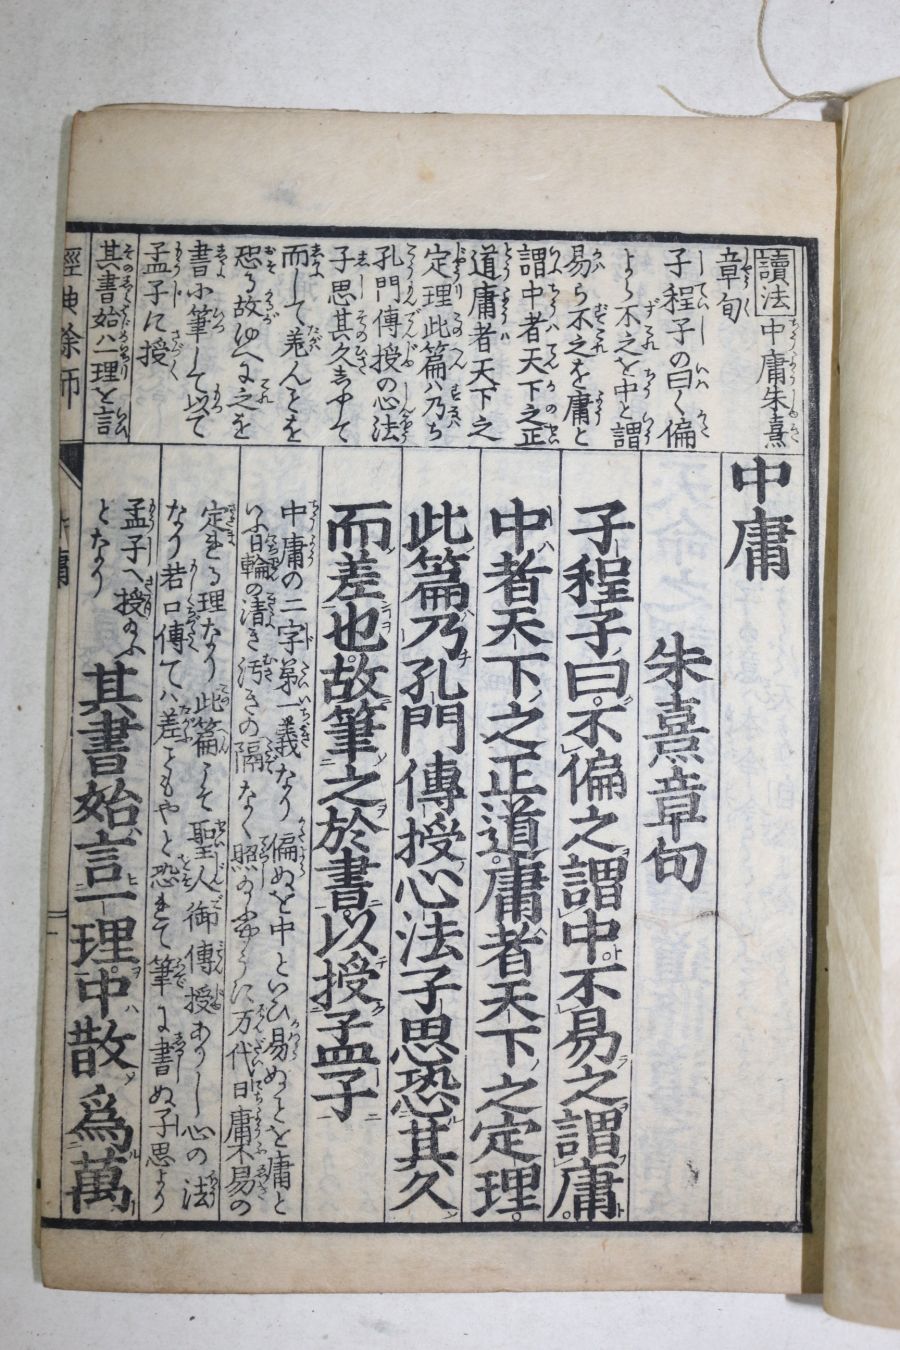 讀法 中庸朱熹
章句
子程子の曰く偏
よら不之を中と謂
易ら不之を庸と
謂中者天下之正
道庸者天下之
定理此篇ハ乃ち
孔門傳授の心法
子思其久ふして
而して差んとを
恐る故ゆへに之を
書に筆して以て
孟子に授
其書始ハ一理を言
中庸
朱熹章句
子程子曰不偏之謂中不易之謂庸
中者天下之正道庸者天下之定理
此篇乃孔門傳授心法子思恐其久
而差也故筆之於書以授孟子
中庸の二字第一義なり偏ぬを中といひ易ぬことを庸と
いふ日輪の清き汚きの隔なく照のふうに万代日庸不易の
定まる理なり此篇こそ聖人御傳授ありし心の法
なり若口傳てハ差ともやと恐まて筆に書ぬ子思より
孟子へ授のふ
となり
其書始言一理中散爲萬
經典余師
中庸
一